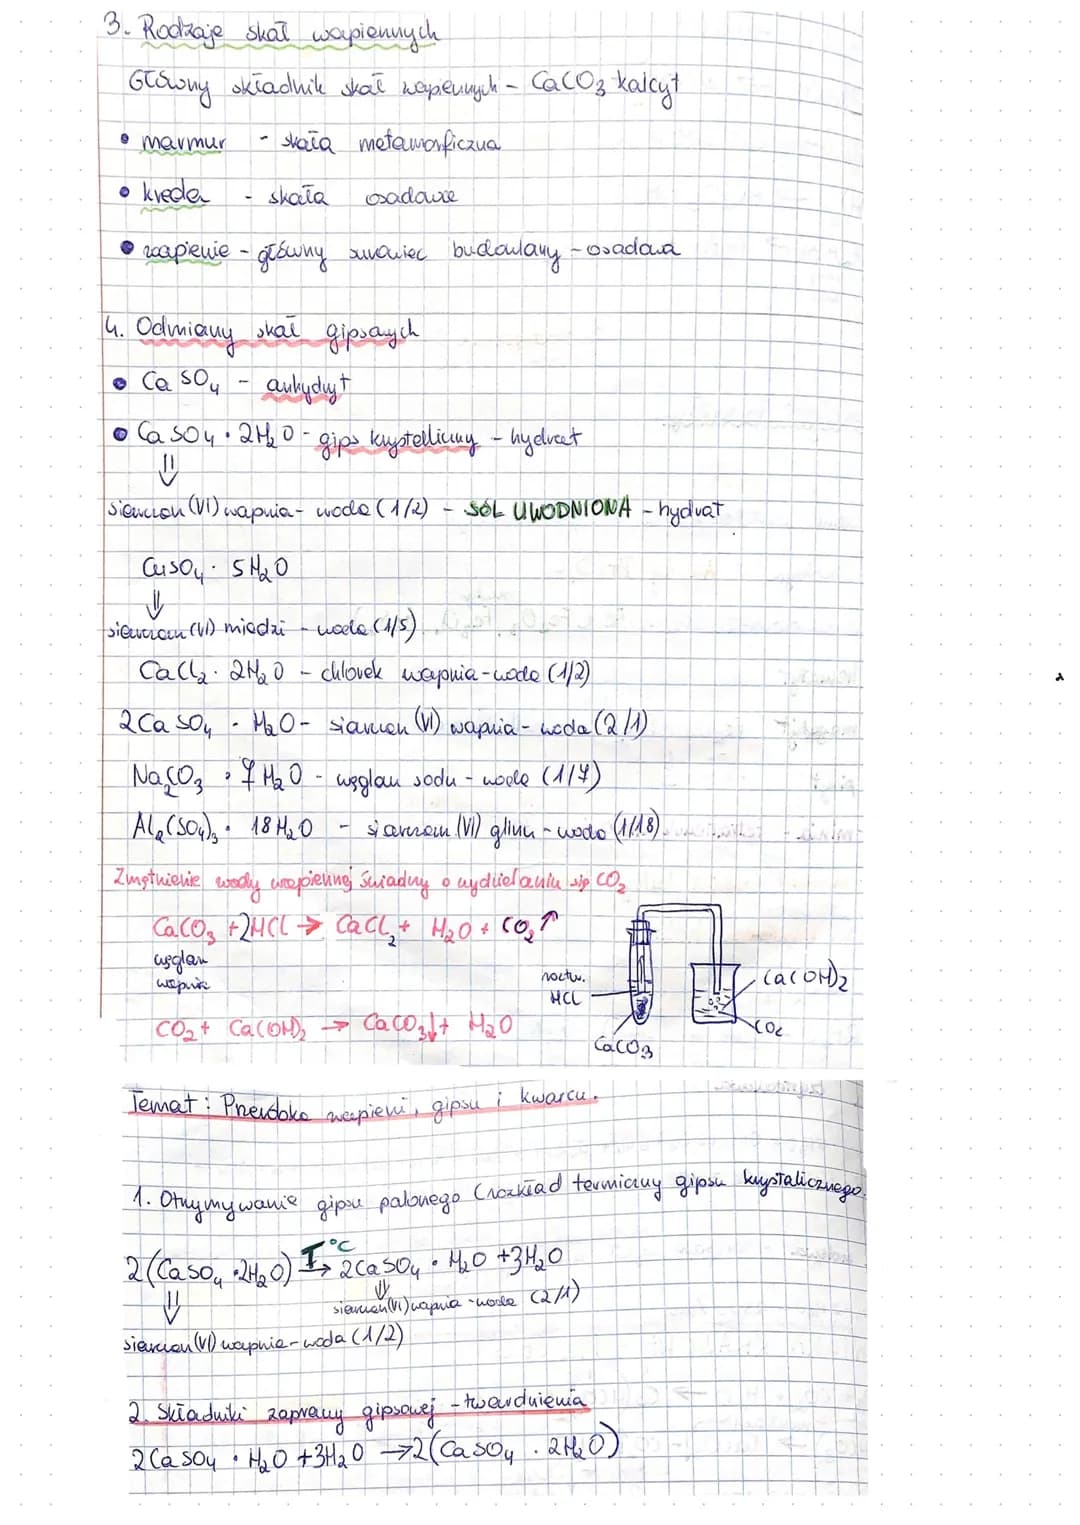 3. Rodzaje skał wapiennych
Główny składnik skał wapiennych - CaCO₃ kalcyt
• marmur - skała metamorficzna
• kreda - skała osadowa
• wapienie - główny surowiec budowlany - osadowa
4. Odmiany skał gipsowych
• CaSO₄ - anhydryt
• CaSO₄ · 2H₂O - gips krystaliczny - hydrat
⇓
siarczan (VI) wapnia - woda (1/2) - SÓL UWODNIONA - hydrat
CuSO₄ · 5H₂O
⇓
siarczan (VI) miedzi - woda (1/5)
CaCl₂ · 2H₂O - chlorek wapnia - woda (1/2)
2CaSO₄ · H₂O - siarczan (VI) wapnia - woda (2/1)
Na₂CO₃ · 7H₂O - węglan sodu - woda (1/7)
Al₂(SO₄)₃ · 18H₂O - siarczan (VI) glinu - woda (1/18)
Zmętnienie wody wapiennej świadczy o wydzielaniu się CO₂
CaCO₃ + 2HCl → CaCl₂ + H₂O + CO₂↑
węglan
wapnia
roztw.
HCl
Ca(OH)₂
CO₂
CaCO₃
CO₂ + Ca(OH)₂ → CaCO₃↓ + H₂O
Temat: Przeróbka wapieni, gipsu i kwarcu.
1. Otrzymywanie gipsu palonego (rozkład termiczny gipsu krystalicznego
2(CaSO₄ · 2H₂O) T°C → 2CaSO₄ · H₂O + 3H₂O
⇓ ⇓
siarczan (VI) wapnia - woda (2/1)
siarczan (VI) wapnia - woda (1/2)
2. Składniki zaprawy gipsowej - twardnienia
2CaSO₄ · H₂O + 3H₂O → 2(CaSO₄ · 2H₂O)